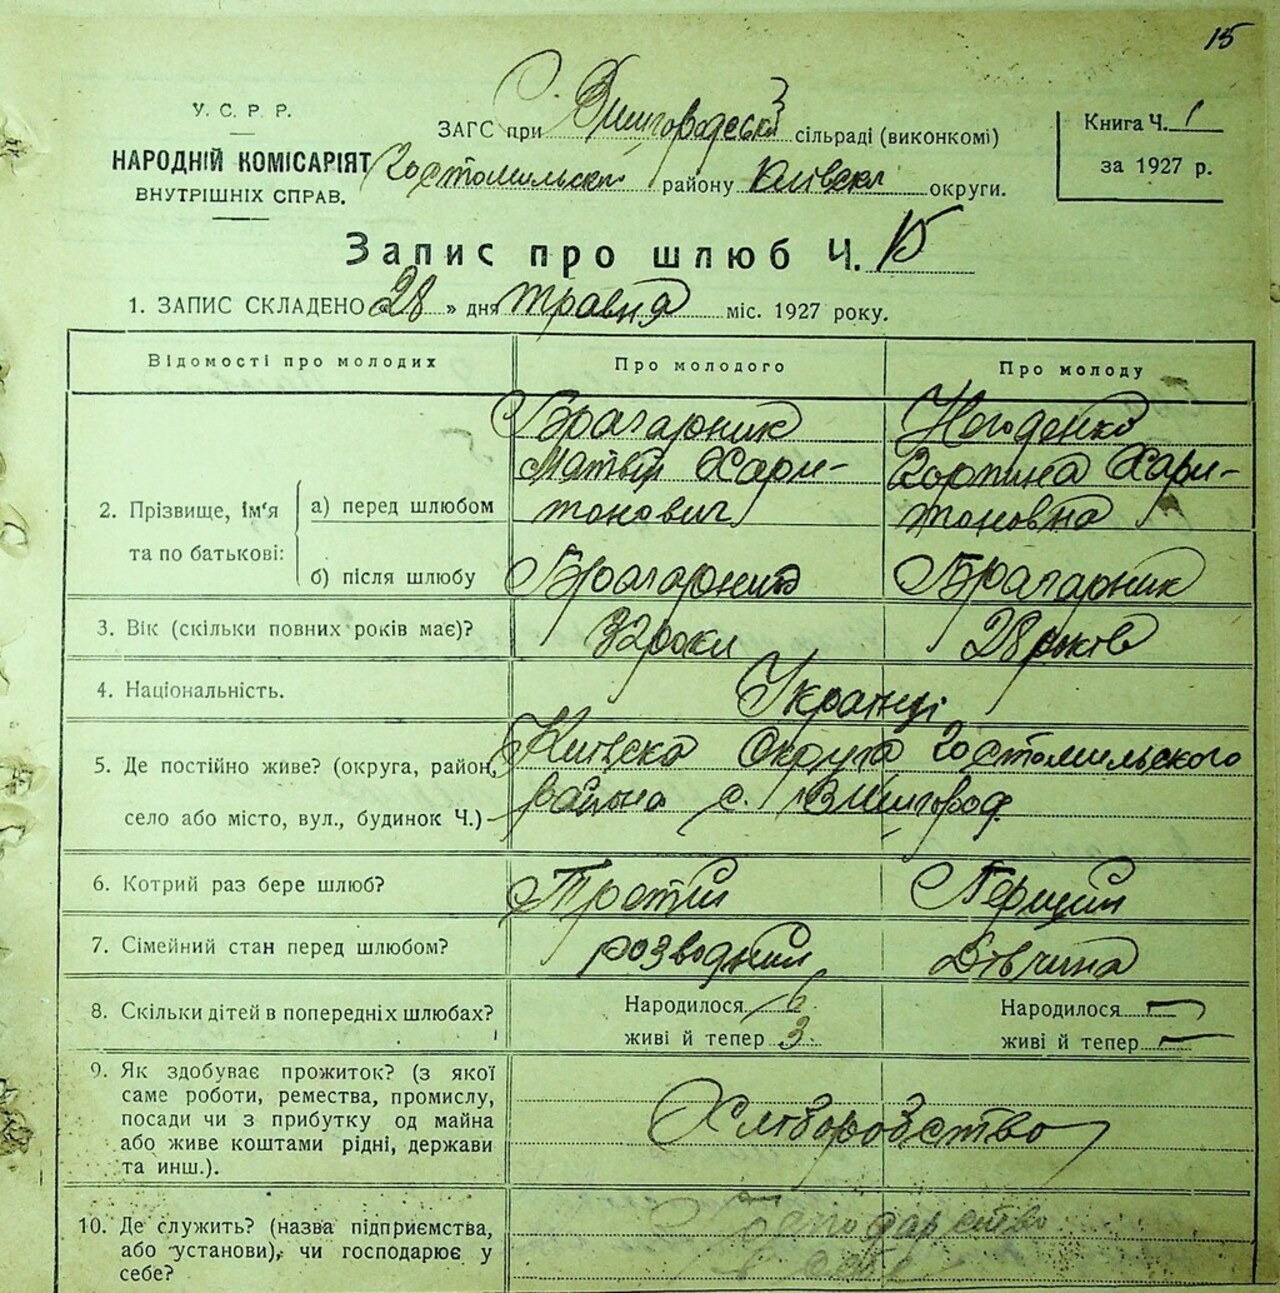 15
У. С. Р. Р.
НАРОДНІЙ КОМІСАРІЯТ
ВНУТРІШНІХ СПРАВ.
ЗАГС при С. Вишгородській сільраді (виконкомі)
Гостомильськ району Київськ округи.
Книга Ч. 1
за 1927 р.
Запис про шлюб Ч. 15
1. ЗАПИС СКЛАДЕНО «28» дня травня міс. 1927 року.
Відомості про молодих Про молодого Про молоду
2. Прізвище, ім'я та по батькові:
а) перед шлюбом
Брагарник
Матвій Хари-
тонович
Негоденко
Горпина Хари-
тоновна
б) після шлюбу Брагарник Брагарник
3. Вік (скільки повних років має)? 32 роки 28 років
4. Національність. Українці
5. Де постійно живе? (округа, район, Київська Округа Гостомильського
село або місто, вул., будинок Ч.) района с. Вишгород.
6. Котрий раз бере шлюб? Третій Перший
7. Сімейний стан перед шлюбом? розводний Дівчина
8. Скільки дітей в попередніх шлюбах? Народилося 6 Народилося —
живі й тепер 3 живі й тепер —
9. Як здобуває прожиток? (з якої
саме роботи, ремества, промислу,
посади чи з прибутку од майна
або живе коштами рідні, держави
та инш.).
Хліборобство
10. Де служить? (назва підприємства,
або установи), чи господарює у
себе?
Господарство